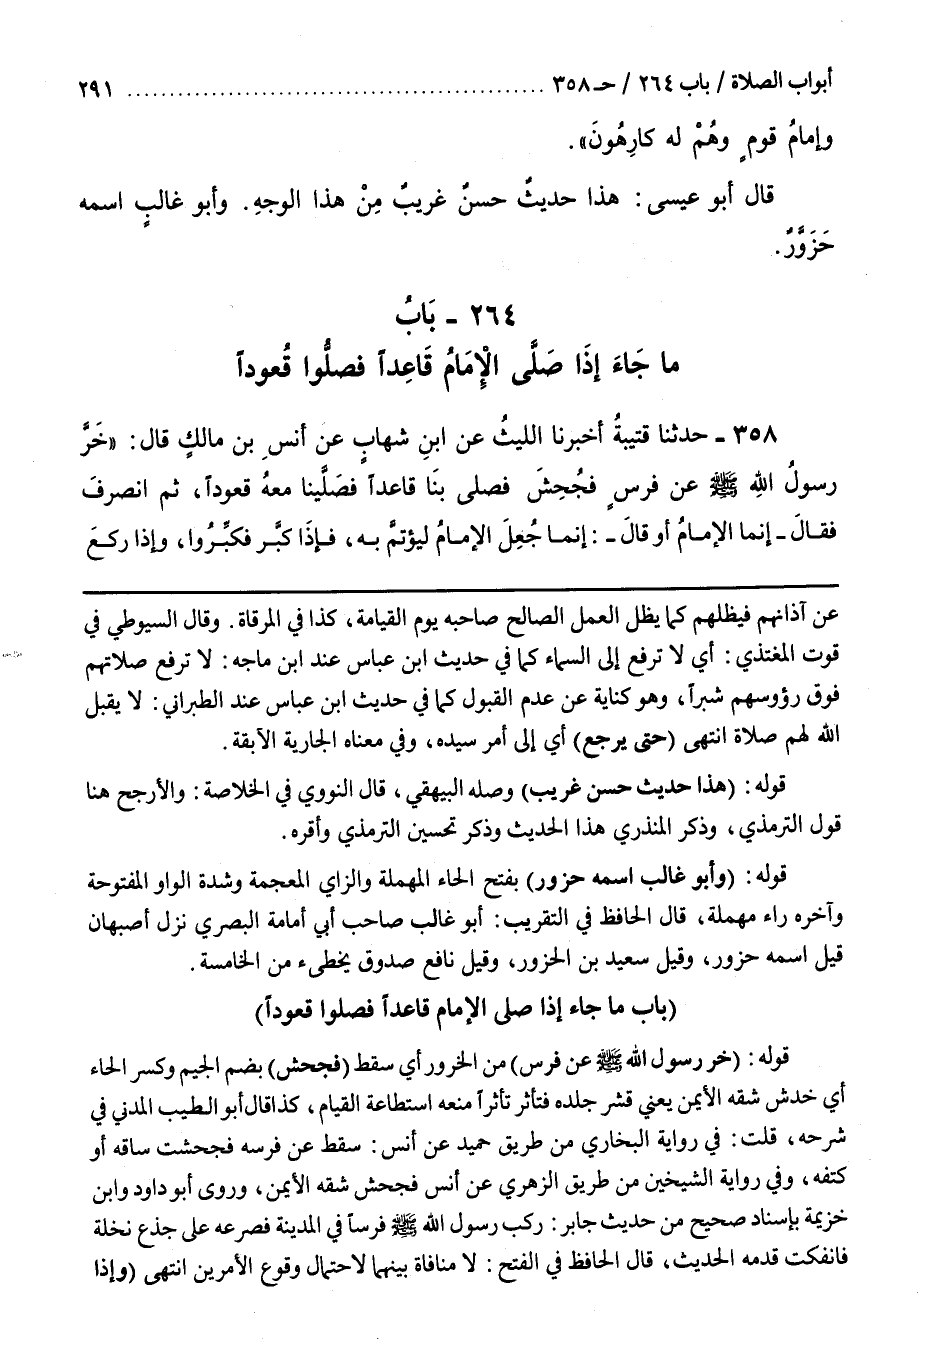 أبواب الصلاة / باب ٢٦٤ / حـ ٣٥٨ ........................................ ٢٩١
وإمامُ قومٍ وهُمْ له كارِهُونَ».
قال أبو عيسى: هذا حديثٌ حسنٌ غريبٌ مِنْ هذا الوجهِ. وأبو غالبٍ اسمه
حَزَوَّرٌ.
٢٦٤ - بَابُ
ما جَاءَ إِذَا صَلَّى الْإِمَامُ قَاعِداً فصلُّوا قُعوداً
٣٥٨ - حدثنا قتيبةُ أخبرنا الليثُ عن ابنِ شهابٍ عن أنسِ بن مالكٍ قال: «خَرَّ
رسولُ اللهِ ﷺ عن فرسٍ فجُحِشَ فصلى بنَا قاعداً فصَلَّينا معهُ قعوداً، ثم انصرفَ
فقالَ - إنما الإمامُ أو قالَ -: إنما جُعِلَ الإمامُ ليؤتمَّ به، فإذَا كبَّر فكبِّرُوا، وإذا ركعَ
عن آذانهم فيظلهم كما يظل العمل الصالح صاحبه يوم القيامة، كذا في المرقاة. وقال السيوطي في
قوت المغتذي: أي لا ترفع إلى السماء كما في حديث ابن عباس عند ابن ماجه: لا ترفع صلاتهم
فوق رؤوسهم شبراً، وهو كناية عن عدم القبول كما في حديث ابن عباس عند الطبراني: لا يقبل
الله لهم صلاة انتهى (حتى يرجع) أي إلى أمر سيده، وفي معناه الجارية الآبقة.
قوله: (هذا حديث حسن غريب) وصله البيهقي، قال النووي في الخلاصة: والأرجح هنا
قول الترمذي، وذكر المنذري هذا الحديث وذكر تحسين الترمذي وأقره.
قوله: (وأبو غالب اسمه حزور) بفتح الحاء المهملة والزاي المعجمة وشدة الواو المفتوحة
وآخره راء مهملة، قال الحافظ في التقريب: أبو غالب صاحب أبي أمامة البصري نزل أصبهان
قيل اسمه حزور، وقيل سعيد بن الحزور، وقيل نافع صدوق يخطىء من الخامسة.
(باب ما جاء إذا صلى الإمام قاعداً فصلوا قعوداً)
قوله: (خر رسول الله ﷺ عن فرس) من الخرور أي سقط (فجحش) بضم الجيم وكسر الحاء
أي خدش شقه الأيمن يعني قشر جلده فتأثر تأثراً منعه استطاعة القيام، كذا قال أبو الطيب المدني في
شرحه، قلت: في رواية البخاري من طريق حميد عن أنس: سقط عن فرسه فجحشت ساقه أو
كتفه، وفي رواية الشيخين من طريق الزهري عن أنس فجحش شقه الأيمن، وروى أبو داود وابن
خزيمة بإسناد صحيح من حديث جابر: ركب رسول الله ﷺ فرساً في المدينة فصرعه على جذع نخلة
فانفكت قدمه الحديث، قال الحافظ في الفتح: لا منافاة بينهما لاحتمال وقوع الأمرين انتهى (وإذا